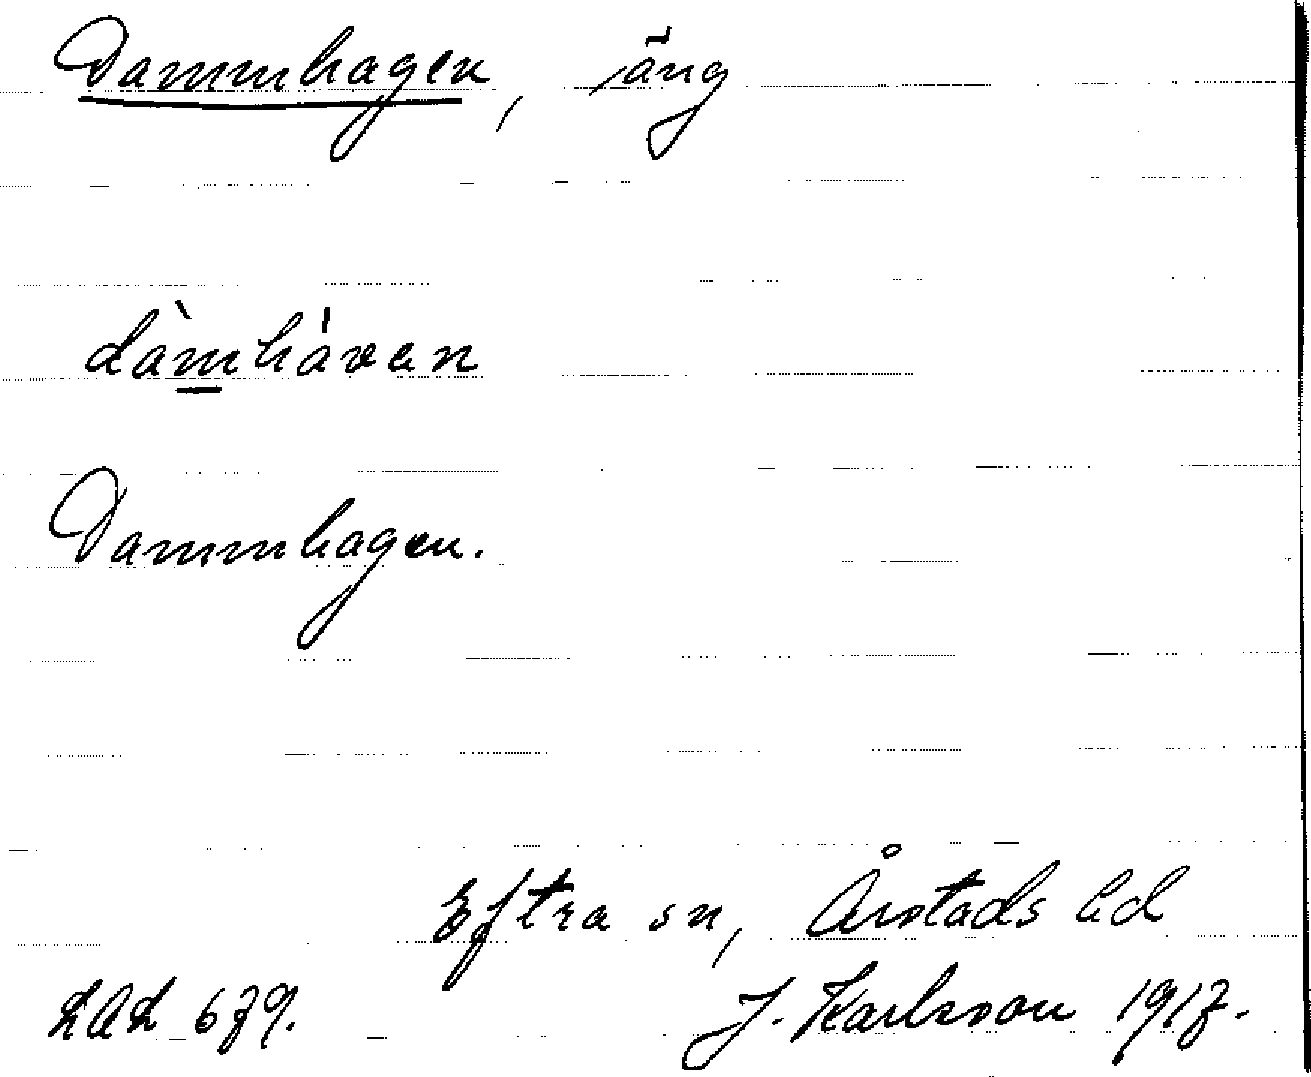 Dammhagen, äng
dàmháven
Dammhagen.
Eftra sn, Årstads hd
LAL 679. J. Karlsson 1917.